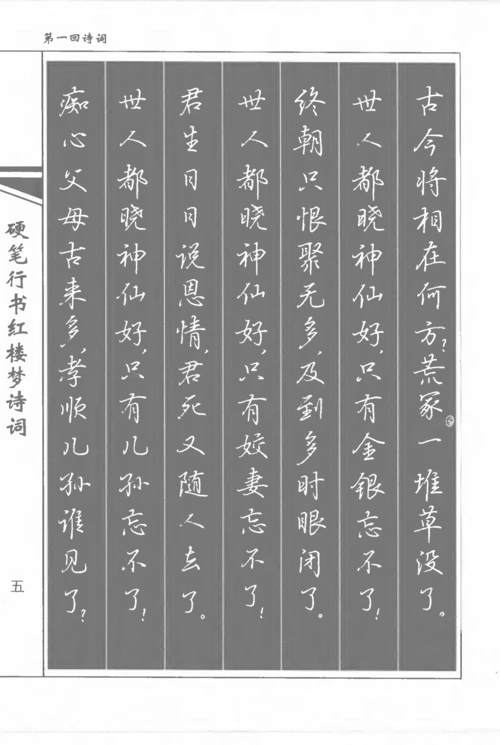 第一回诗词
古今将相在何方?荒冢一堆草没了。
世人都晓神仙好,只有金银忘不了!
终朝只恨聚无多,及到多时眼闭了。
世人都晓神仙好,只有姣妻忘不了!
君生日日说恩情,君死又随人去了。
世人都晓神仙好,只有儿孙忘不了!
痴心父母古来多,孝顺儿孙谁见了?
硬笔行书红楼梦诗词
五